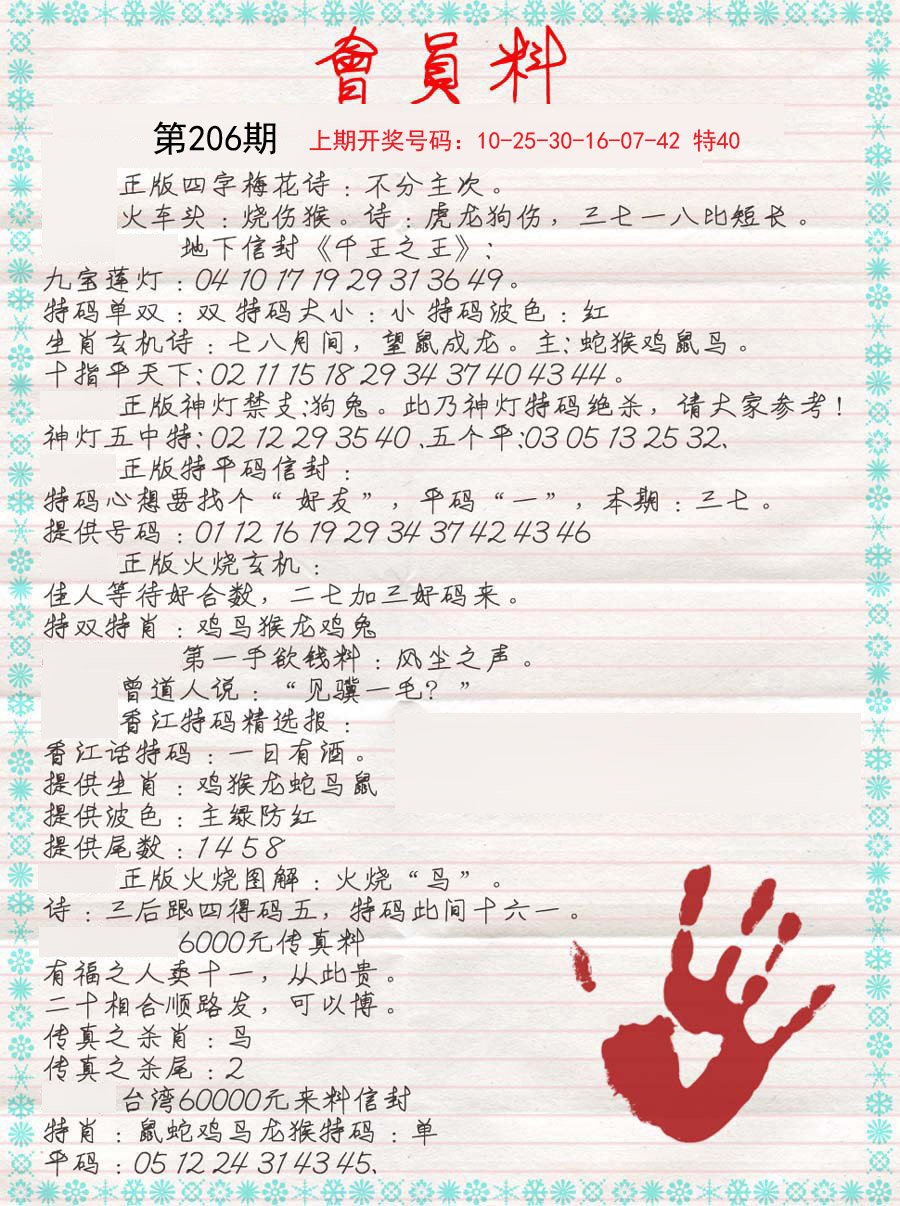 會員料
第206期 上期开奖号码：10-25-30-16-07-42 特40
正版四字梅花诗：不分主次。
火车头：烧伤猴。诗：虎龙狗伤，三七一八比短长。
地下信封《千王之王》：
九宝莲灯：04 10 17 19 29 31 36 49。
特码单双：双 特码大小：小 特码波色：红
生肖玄机诗：七八月间，望鼠成龙。主：蛇猴鸡鼠鸟。
十指平天下：02 11 15 18 29 34 37 40 43 44。
正版神灯禁支：狗兔。此乃神灯特码绝杀，请大家参考！
神灯五中特：02 12 29 35 40、五个平：03 05 13 25 32、
正版特平码信封：
特码心想要找个“好友”，平码“一”，本期：三七。
提供号码：01 12 16 19 29 34 37 42 43 46
正版火烧玄机：
佳人等待好合数，二七加三好码来。
特双特肖：鸡鸟猴龙鸡兔
第一手欲钱料：风尘之声。
曾道人说：“见骥一毛？”
香江特码精选报：
香江话特码：一日有酒。
提供生肖：鸡猴龙蛇鸟鼠
提供波色：主绿防红
提供尾数：1 4 5 8
正版火烧图解：火烧“鸟”。
诗：三后跟四得码五，特码此间十六一。
6000元传真料
有福之人卖十一，从此贵。
二十相合顺路发，可以博。
传真之杀肖：鸟
传真之杀尾：2
台湾60000元来料信封
特肖：鼠蛇鸡鸟龙猴特码：单
平码：05 12 24 31 43 45、